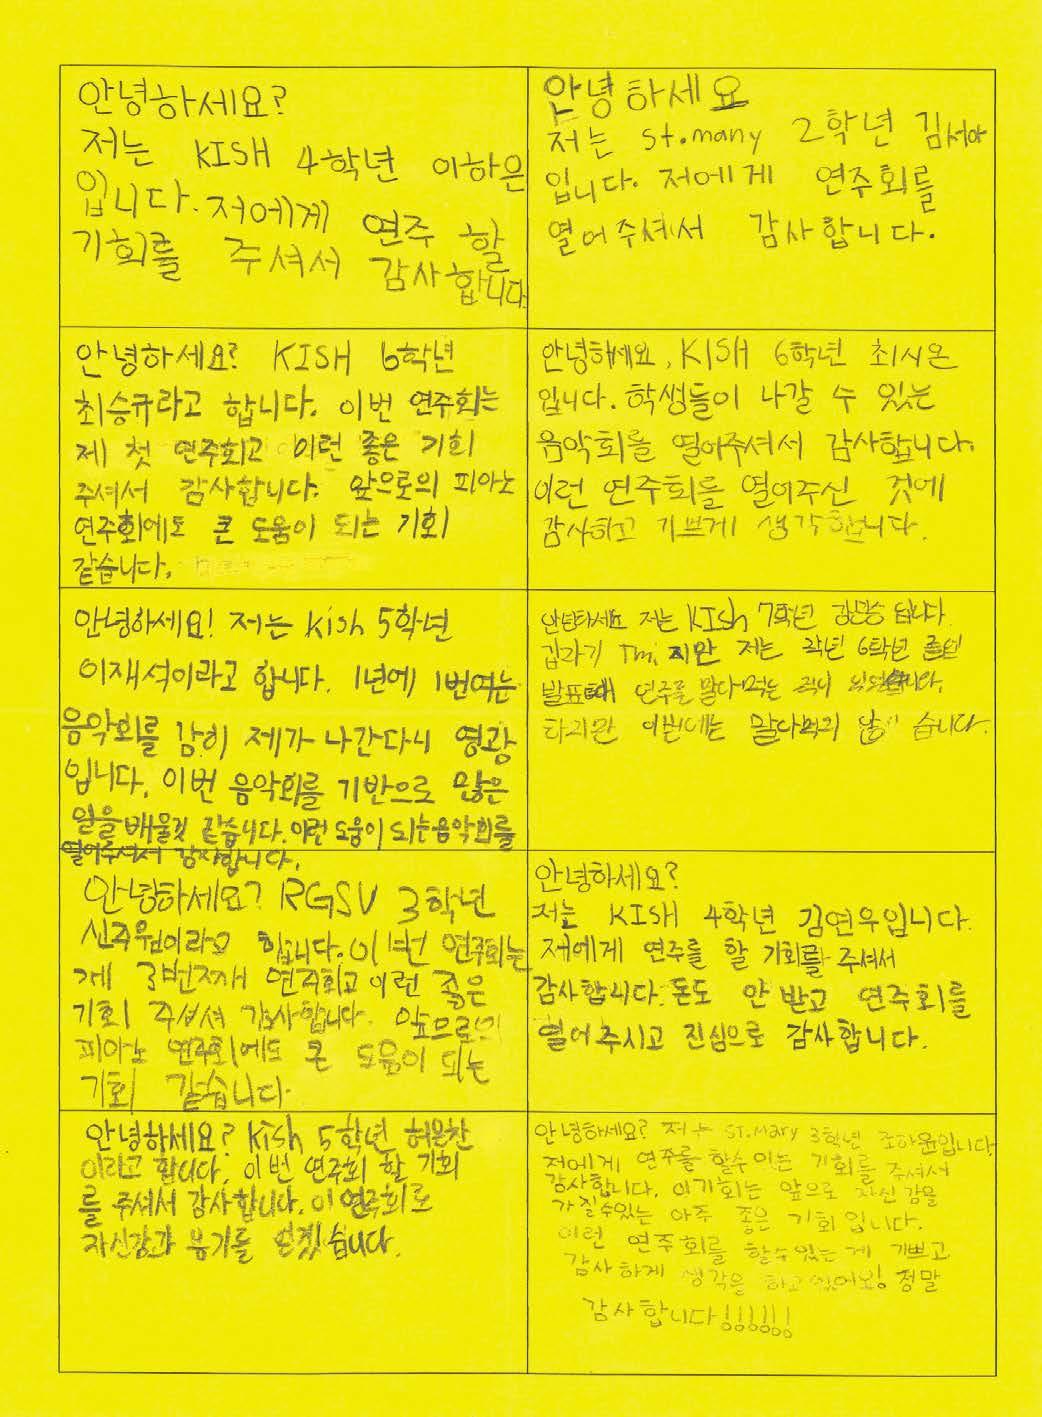 안녕하세요?
저는 KISH 4학년 이하은
입니다. 저에게 연주 할
기회를 주셔서 감사합니다
안녕하세요
저는 st.many 2학년 김서아
입니다. 저에게 연주회를
열어주셔서 감사합니다.
안녕하세요? KISH 6학년
최승규라고 합니다. 이번 연주회는
제 첫 연주회고 이런 좋은 기회
주셔서 감사합니다. 앞으로의 피아노
연주회에도 큰 도움이 되는 기회
같습니다.
안녕하세요, KISH 6학년 최시온
입니다. 학생들이 나갈 수 있는
음악회를 열어주셔서 감사합니다.
이런 연주회를 열어주신 것에
감사하고 기쁘게 생각합니다.
안녕하세요! 저는 kish 5학년
이재석이라고 합니다. 1년에 1번여는
음악회를 감히 제가 나간다니 영광
입니다. 이번 음악회를 기반으로 많은
일을 배울것 같습니다. 이런 도움이 되는 음악회를
열어주셔서 감사합니다.
안녕하세요 저는 KISh 7학년 입니다
갑자기 Tmi 지만 저는 작년 6학년 졸업
발표때 연주를 말아먹는
하지만 이번에는 말아먹지 않 습니다.
안녕하세요? RGSV 3학년
신주원이라고 합니다. 이번 연주회는
제 3번째 연주회고 이런 좋은
기회 주셔서 감사합니다. 앞으로의
피아노 연주회에도 큰 도움이 되는
기회 같습니다.
안녕하세요?
저는 KISH 4학년 김연우입니다.
제에게 연주를 할 기회를 주셔서
감사합니다. 돈도 안 받고 연주회를
열어주시고 진심으로 감사합니다.
안녕하세요? kish 5학년 허은찬
이라고 합니다. 이번 연주회 할 기회
를 주셔서 감사합니다. 이 연주회로
자신감과 용기를 얻겠습니다.
안녕하세요? 저는 ST.Mary 3학년 조하윤입니다
저에게 연주를 할수 있는 기회를 주셔서
감사합니다. 이기회는 앞으로 자신 감을
가질수있는 아주 좋은 기회 입니다.
이런 연주회를 할수있는게 기쁘고
감사하게 생각을 하고 있어요! 정말
감사합니다!!!!!!